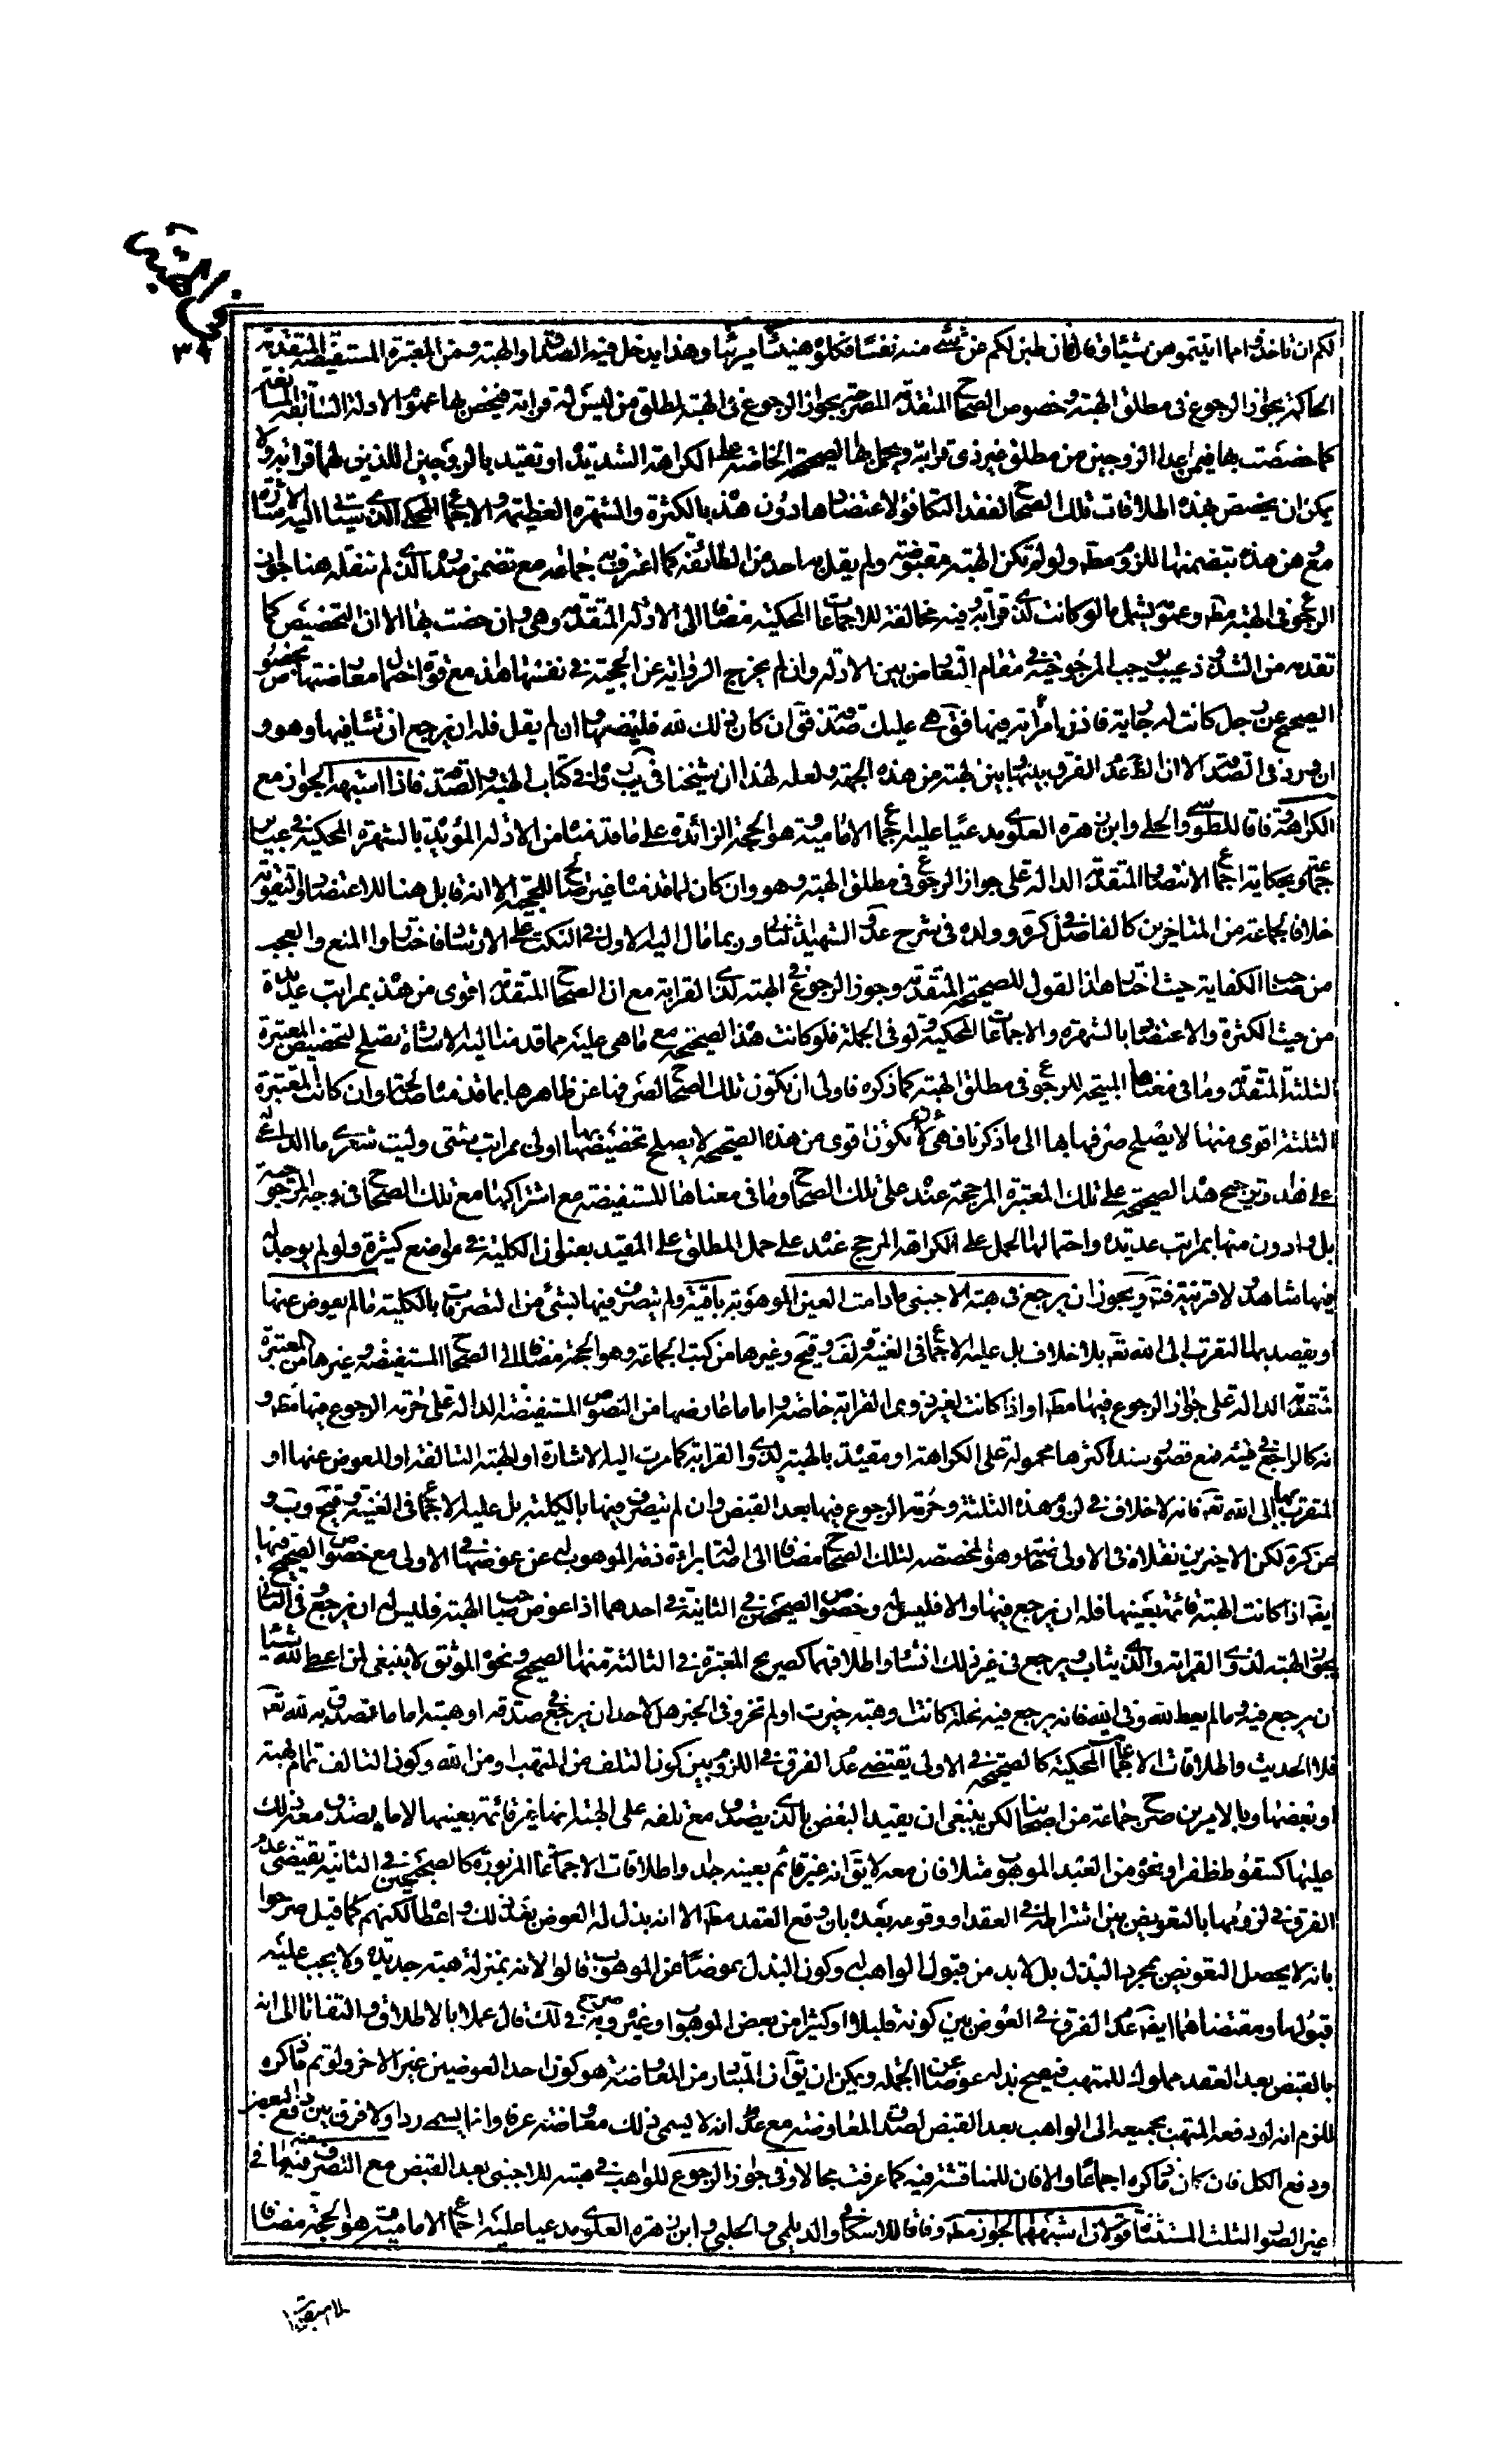 في الهبات
٣٩
لكم ان تأخذوا مما اتيتموهن شيئا وقال فان طبن لكم عن شئ منه نفسا فكلوه هنيئا مريئا وهذا يدخل فيه الصداق والهبة ومن المعتبرة المستفيضة المتقدمة
الحاكمة بجواز الرجوع في مطلق الهبة وخصوص الصحاح المتقدمة المصرحة بجواز الرجوع في الهبة لمطلق من ليس له قرابة فيخص بها عموم الادلة السابقة المانعة
كما خصصت بها فيمن عدا الزوجين من مطلق غير ذي قرابة ويحمل بها الصحيحة الخاصة على الكراهة الشديدة او تقيد بالزوجين اللذين لهما قرابة ولا
يمكن ان يخصص بهذه اطلاقات تلك الصحاح لفقد التكافؤ لاعتضادها دون هذه بالكثرة والشهرة العظيمة والاجماع المحكي الذي سيأتي اليه الاشارة
مع وهن هذه بتضمنها اللزوم مطه ولو لم تكن الهبة مقبوضة ولم يقل به احد من الطائفة كما اعترف به جماعة مع تضمن صدرها الذي لم ننقله هنا جواز
الرجوع في الهبة مطه وعمومه يشمل ما لو كانت لذي قرابة وفيه مخالفة للاجماعات المحكية مضافا الى الادلة المتقدمة وهي وان خصت بها الا ان التخصيص كما
تقدم من الشذوذ عيب يوجب المرجوحية في مقام التعارض بين الادلة وان لم يخرج الرواية عن الحجية في نفسها هذا مع قوة احتمال معارضتها بخصوص
الصحيح عن رجل كانت له جارية فاذته امرأته فيها فق هي عليك صدقة فق ان كان قال ذلك لله فليمضها وان لم يقل فله ان يرجع ان شاء فيها وهو و
ان ورد في الصدقة الا ان الظ عدم الفرق بينها وبين الهبة من هذه الجهة ولعله لهذا ان شيخنا في يب رواه في كتاب الهبة والصدقة فاذا اشبهه الجواز مع
الكراهة وفاقا للطوسي والحلي وابن زهرة العلوي مدعيا عليه اجماع الامامية وهو الحجة الزائدة على ما قدمناه من الادلة المؤيدة بالشهرة المحكية في عبائر
جماعة وبحكاية اجماع الانتصار المتقدمة الدالة على جواز الرجوع في مطلق الهبة وهو وان كان لما قدمنا غير صالح للحجية الا انه قابل هنا للاعتضاد والتقوية
خلافا لجماعة من المتأخرين كالفاضل في كره وولده في شرح عد والشهيد الثاني وربما مال اليه الاول في النكت على الارشاد فاختاروا المنع والعجب
من صاحب الكفاية حيث اختار هذا القول للصحيحة المتقدمة وجوز الرجوع في الهبة لذي القرابة مع ان الصحاح المتقدمة اقوى من هذه بمراتب عديدة
من حيث الكثرة والاعتضاد بالشهرة والاجماعات المحكية ولو في الجملة فلو كانت هذه الصحيحة مع ما هي عليه مما قدمنا اليه الاشارة تصلح لتخصيص المعتبرة
الثلثة المتقدمة وما في معناها المبيحة للرجوع في مطلق الهبة كما ذكره فاولى ان تكون تلك الصحاح لصرفها عن ظاهرها بما قدمنا صالحة وان كانت المعتبرة
الثلثة اقوى منها لا يصلح صرفها بها الى ما ذكرنا فهي لان تكون اقوى من هذه الصحيحة لا يصلح تخصيصها بها اولى بمراتب شتى وليت شعري ما الداعي له
على هذا وترجيح هذه الصحيحة على تلك المعتبرة المرجحة عنده على تلك الصحاح وما في معناها المستفيضة مع اشتراكها مع تلك الصحاح في وجه المرجوحية
بل وادون منها بمراتب عديدة واحتمالها الحمل على الكراهة المرجح عنده على حمل المطلق على المقيد بعنوان الكلية في مواضع كثيرة ولو لم يوجد له
فيها شاهد ولا قرينة فته ويجوز ان يرجع في هبة الاجنبي ما دامت العين الموهوبة باقية ولم يتصرف فيها بشئ من التصرفات بالكلية ما لم يعوض عنها
او يقصد بها التقرب الى الله تعه بلا خلاف بل عليه الاجماع في الغنية ولف وقيح وغيرها من كتب الجماعة وهو الحجة مضافا الى الصحاح المستفيضة وغيرها من المعتبرة
متقدمة الدالة على جواز الرجوع فيها مطه او اذا كانت لغير ذوي القرابة خاصة واما ما عارضها من النصوص المستفيضة الدالة على حرمة الرجوع فيها مطه و
انه كالراجع في قيئه فمع قصور سند اكثرها محمولة على الكراهة او مقيدة بالهبة لذوي القرابة كما مرت اليه الاشارة او الهبة التالفة او المعوض عنها او
المتقرب بها الى الله تعه فانه لا خلاف في لزوم هذه الثلثة وحرمة الرجوع فيها بعد القبض وان لم يتصرف فيها بالكلية بل عليه الاجماع في الغنية وقيح وب و
عن كره لكن الاخيرين نقلاه في الاولى خاصة وهو المخصص لتلك الصحاح مضافا الى اصالة براءة ذمة الموهوب له عن عوضها في الاولى مع خصوص الصحيح فيها
ايضه اذا كانت الهبة قائمة بعينها فله ان يرجع فيها والا فليس له وخصوص الصحيحين في الثانية في احدهما اذا عوض صاحب الهبة فليس له ان يرجع وفي الثاني
يجوز الهبة لذوي القرابة والذي يثاب ويرجع في غير ذلك ان شاء واطلاقهما كصريح المعتبرة في الثالثة منها الصحيح ونحوه الموثق لا ينبغي لمن اعطى لله شيئا
ان يرجع فيه وما لم يعط لله وفي الله فانه يرجع فيه نحلة كانت او هبة حيزت او لم تحز وفي الخبر هل لاحد ان يرجع في صدقة او هبة اما ما تصدق به لله تعه
فلا الحديث واطلاقات الاجماعات المحكية كالصحيحة في الاولى يقتضي عدم الفرق في اللزوم بين كون التلف من المتهب او من الله وكون التالف تمام الهبة
او بعضها وبالامرين صرح جماعة من اصحابنا لكن ينبغي ان يقيد البعض بالذي يصدق مع تلفه على الهبة انها غير قائمة بعينها لا ما يصدق معه ذلك
عليها كسقوط ظفر او نحوه من العبد الموهوب مثلا فان معه لا يق انه غير قائم بعينه جدا واطلاقات الاجماعات المزبورة كالصحيحين في الثانية يقتضي عدم
الفرق في لزومها بالتعويض بين اشتراطه في العقد او وقوعه بعده بان وقع العقد مطه الا انه بذل له العوض بعد ذلك واعطاه لكنهم كما قيل صرحوا
بانه لا يحصل التعويض بمجرد البذل بل لا بد من قبول الواهب له وكون البذل بعوضا عن الموهوب قالوا لانه بمنزلة هبة جديدة ولا يجب عليه
قبولها ومقتضاهما ايضه عدم الفرق في العوض بين كونه قليلا او كثيرا من بعض الموهوب او غيره وبه صرح في لك قال عملا بالاطلاق والتفاتا الى انه
بالقبض بعد العقد مملوك للمتهب فيصح بذله عوضا عن الجملة ويمكن ان يق ان المتبادر من المعاوضة هو كون احد العوضين غير الاخر ولو تم ما ذكره
للزم انه لو دفعه المتهب بجميعه الى الواهب بعد القبض لصدق المعاوضة مع انه لا يسمى ذلك معاوضة عرفا وانما يسمى ردا ولا فرق بين دفع البعض
ودفع الكل فان كان ما ذكره اجماعا والا فان للمناقشة فيه كما عرفت مجالا وفي جواز الرجوع للواهب في هبته للاجنبي بعد القبض مع التصرف منه فيها في
غير الصور الثلث المستثناة قولان اشبههما الجواز مطه وفاقا للاسكافي والديلمي والحلبي وابن زهرة العلوي مدعيا عليه اجماع الامامية وهو الحجة مضافا